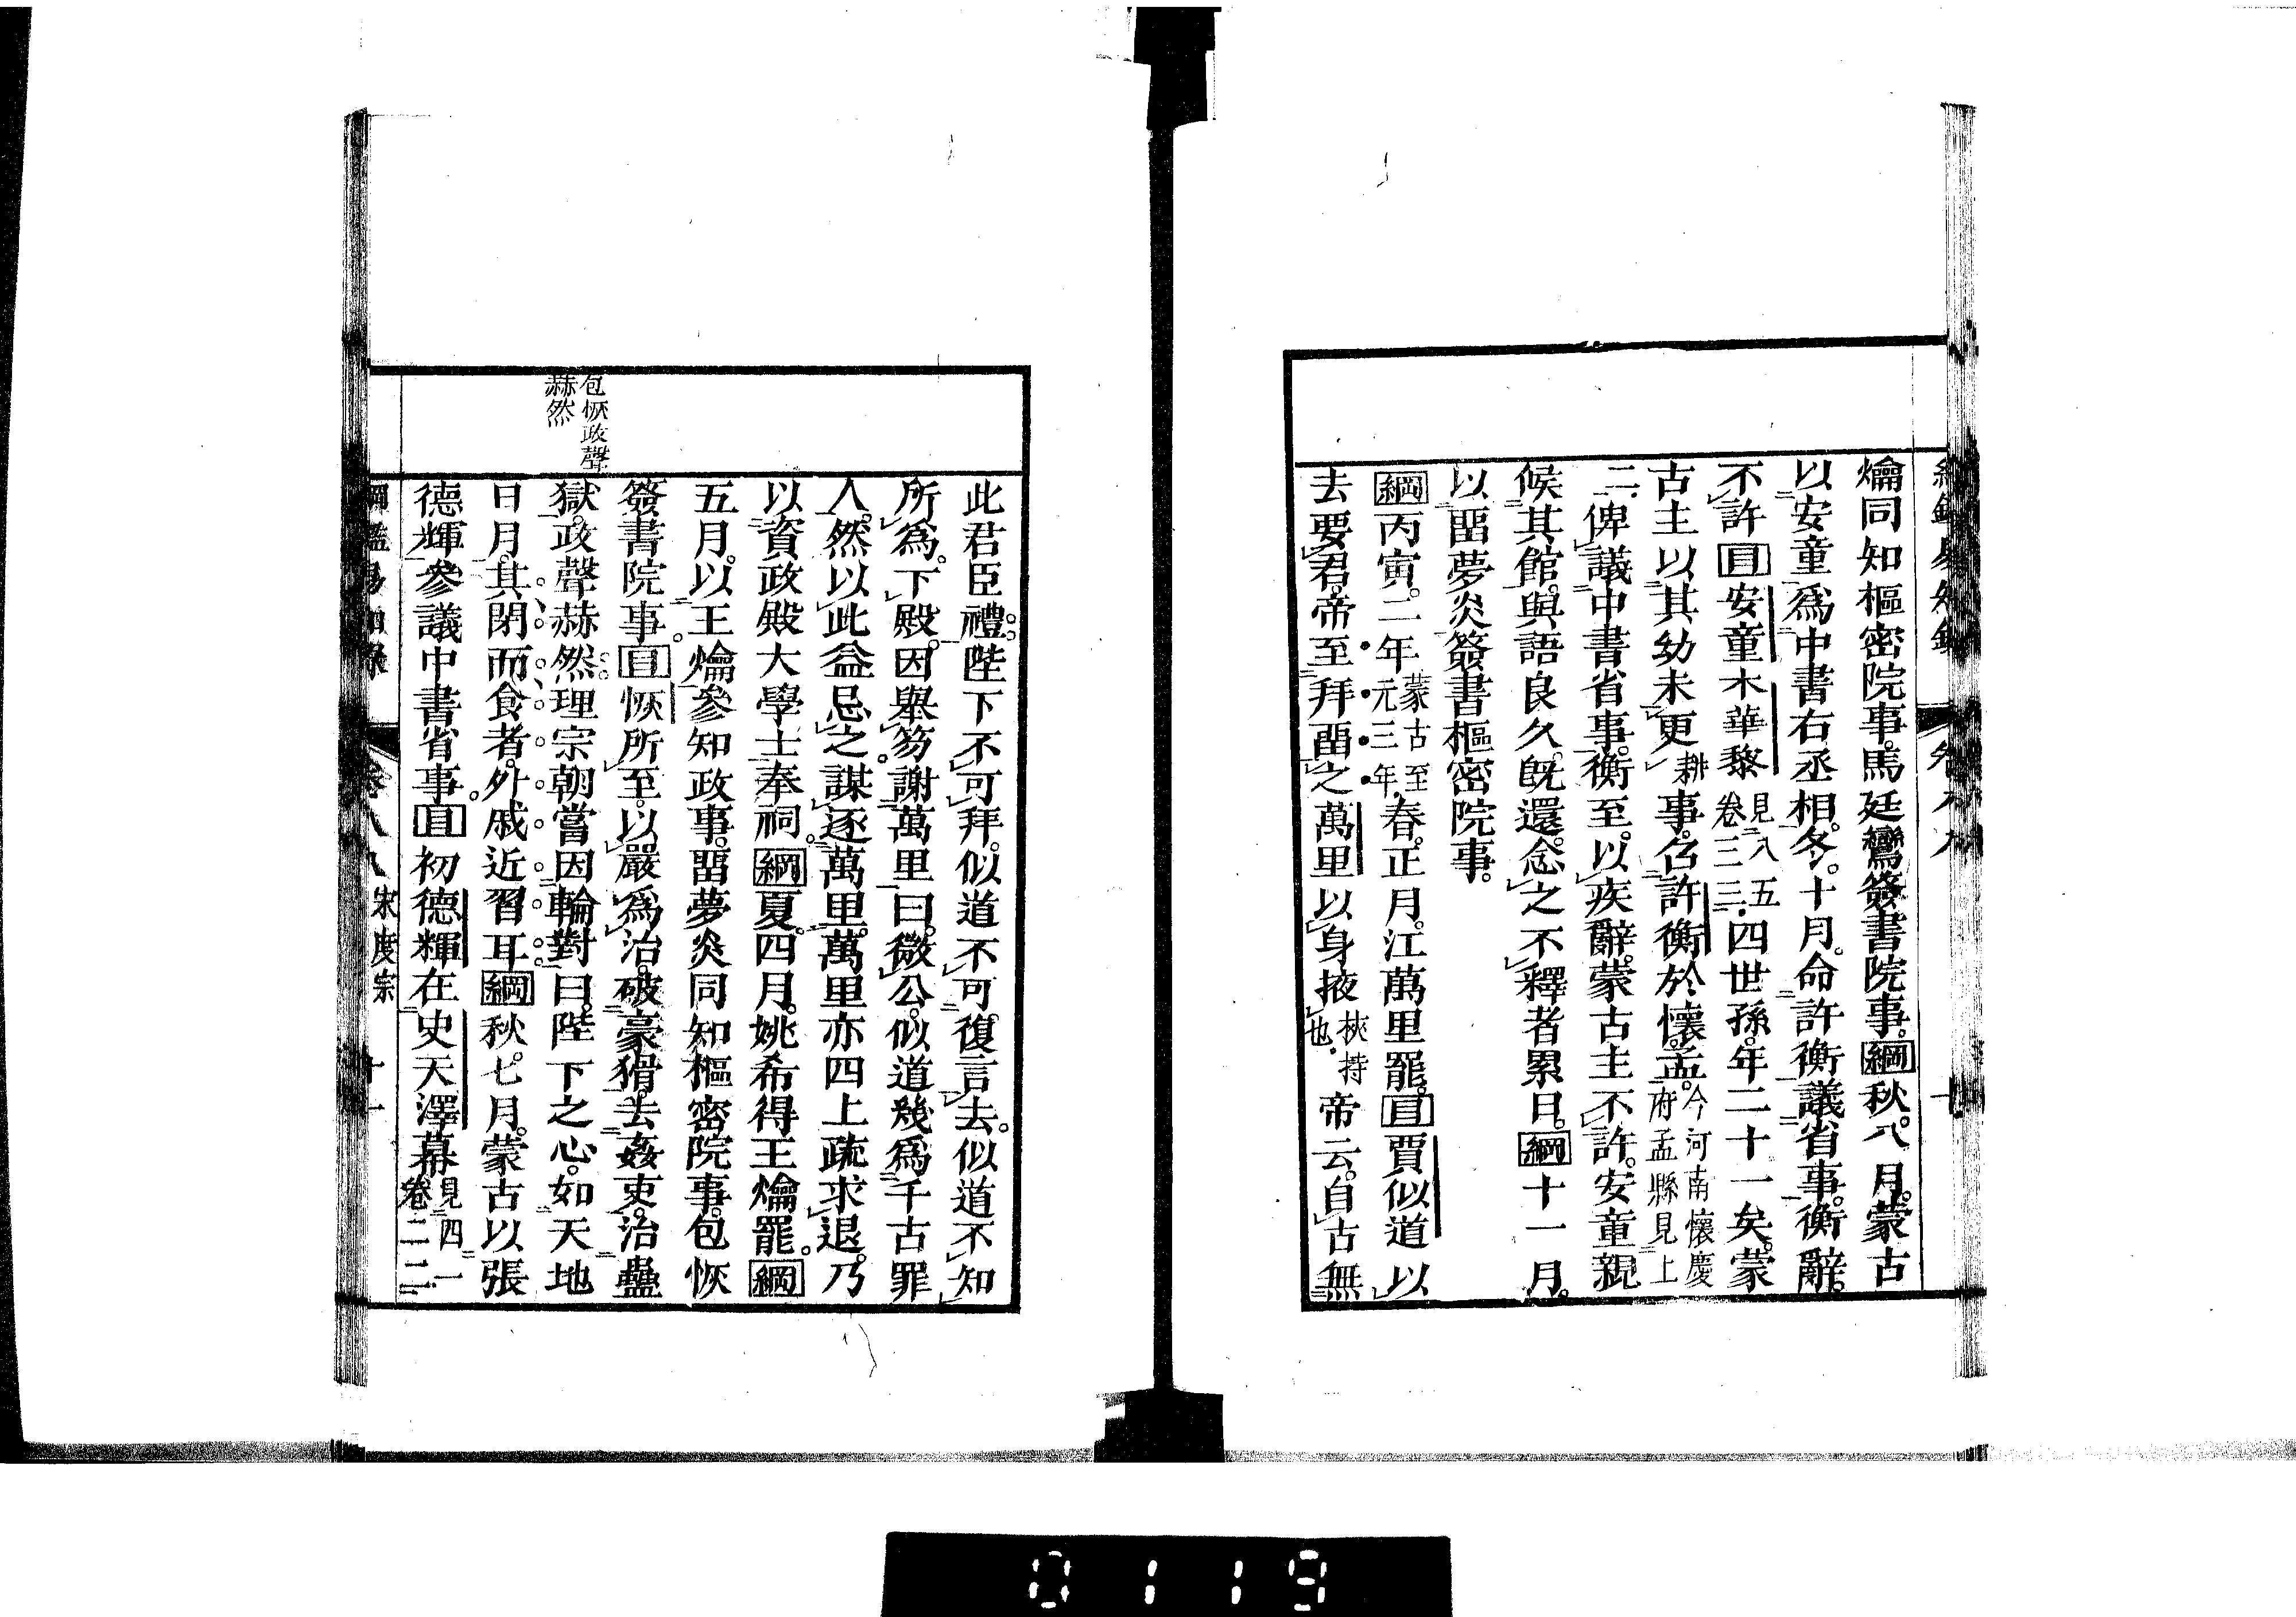 爚同知樞密院事。馬廷鸞簽書院事。綱秋。八月。蒙古
以安童爲中書右丞相。冬。十月。命許衡議省事。衡辭。
不許目安童木華黎見八五卷三三四世孫。年二十一矣。蒙
古主以其幼未更耕事。召許衡於懷。孟。今河南懷慶府孟縣見上
二俾議中書省事。衡至。以疾辭。蒙古主不許。安童親
候其館。與語良久。旣還。念之不釋者累日。綱十一月。
以畱夢炎簽書樞密院事。
綱丙寅。二年蒙古至元三年。春。正月。江萬里罷。目賈似道以
去要君。帝至拜畱之萬里以身掖挾持也帝云。自古無
此君臣禮。陛下不可拜。似道不可復言去。似道不知
所爲。下殿。因舉笏謝萬里曰。微公。似道幾爲千古罪
人。然以此益忌之。謀逐萬里。萬里亦四上疏求退。乃
以資政殿大學士奉祠。綱夏。四月。姚希得王爚罷。綱
五月。以王爚參知政事。畱夢炎同知樞密院事。包恢
簽書院事。目恢所至。以嚴爲治。破豪猾。去姦吏。治蠱
獄。政聲赫然理宗朝嘗因輪對曰。陛下之心。如天地
日月。其閉而食者。外戚近習耳綱秋。七月。蒙古以張
德輝參議中書省事。目初德輝在史天澤幕見四一卷二二
包恢政聲
赫然
綱鑑易知錄 卷八八 宋度宗 十一
0119